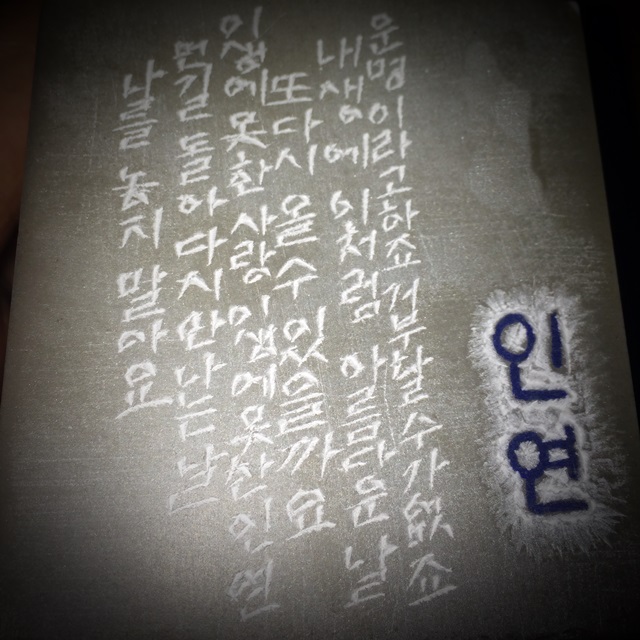 인연
운명이라고하죠 거부할수가없죠
내생에 이처럼 아름다운 날
또다시 올수 있을까요
이생에 못한 사랑 이생에 못한 인연
먼길 돌아 다시 만나는 날
나를 놓지 말아요